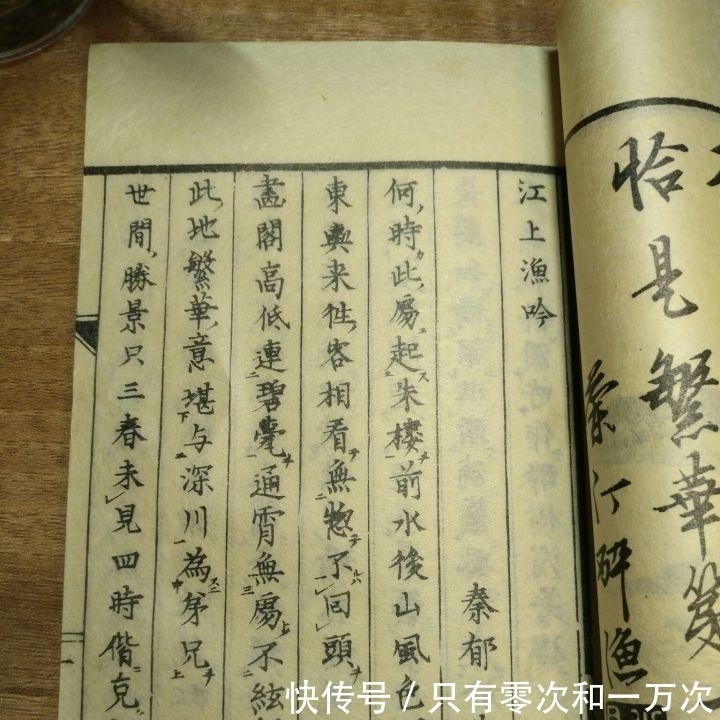 恰是繁華第
秦汀酔漁
江上漁吟
秦郁
何時此處起朱樓前水後山風色
来徃客相看無惣不回頭
畵閣高低連碧甍通宵無處不絃
此地繁華意堪与深川為苐兄
世間勝景只三春未見四時偕
快传号/只有零次和一万次